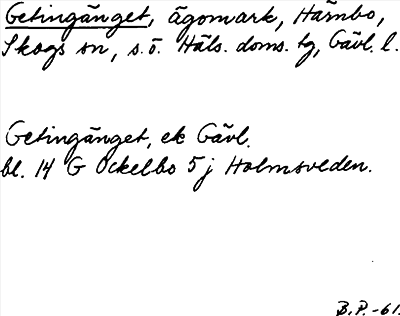 Getingänget, ägomark, Härnbo,
Skogs sn, s.ö. Häls. doms. tg, Gävl. l.
Getingänget, ek Gävl.
bl. 14 G Ockelbo 5 j Holmsveden.
B.P. -61.